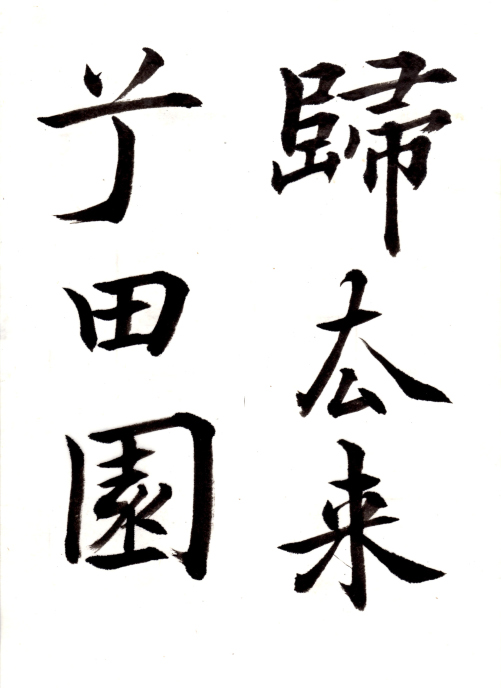 歸去来
兮田園